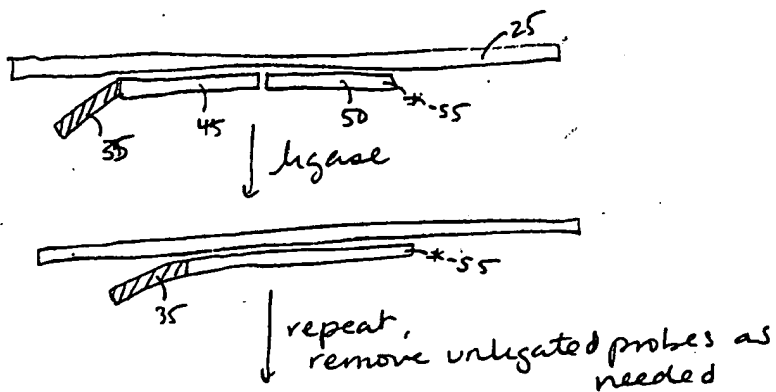 25
45
50
*-55
35
ligase
*-55
35
repeat,
remove unligated probes as
needed